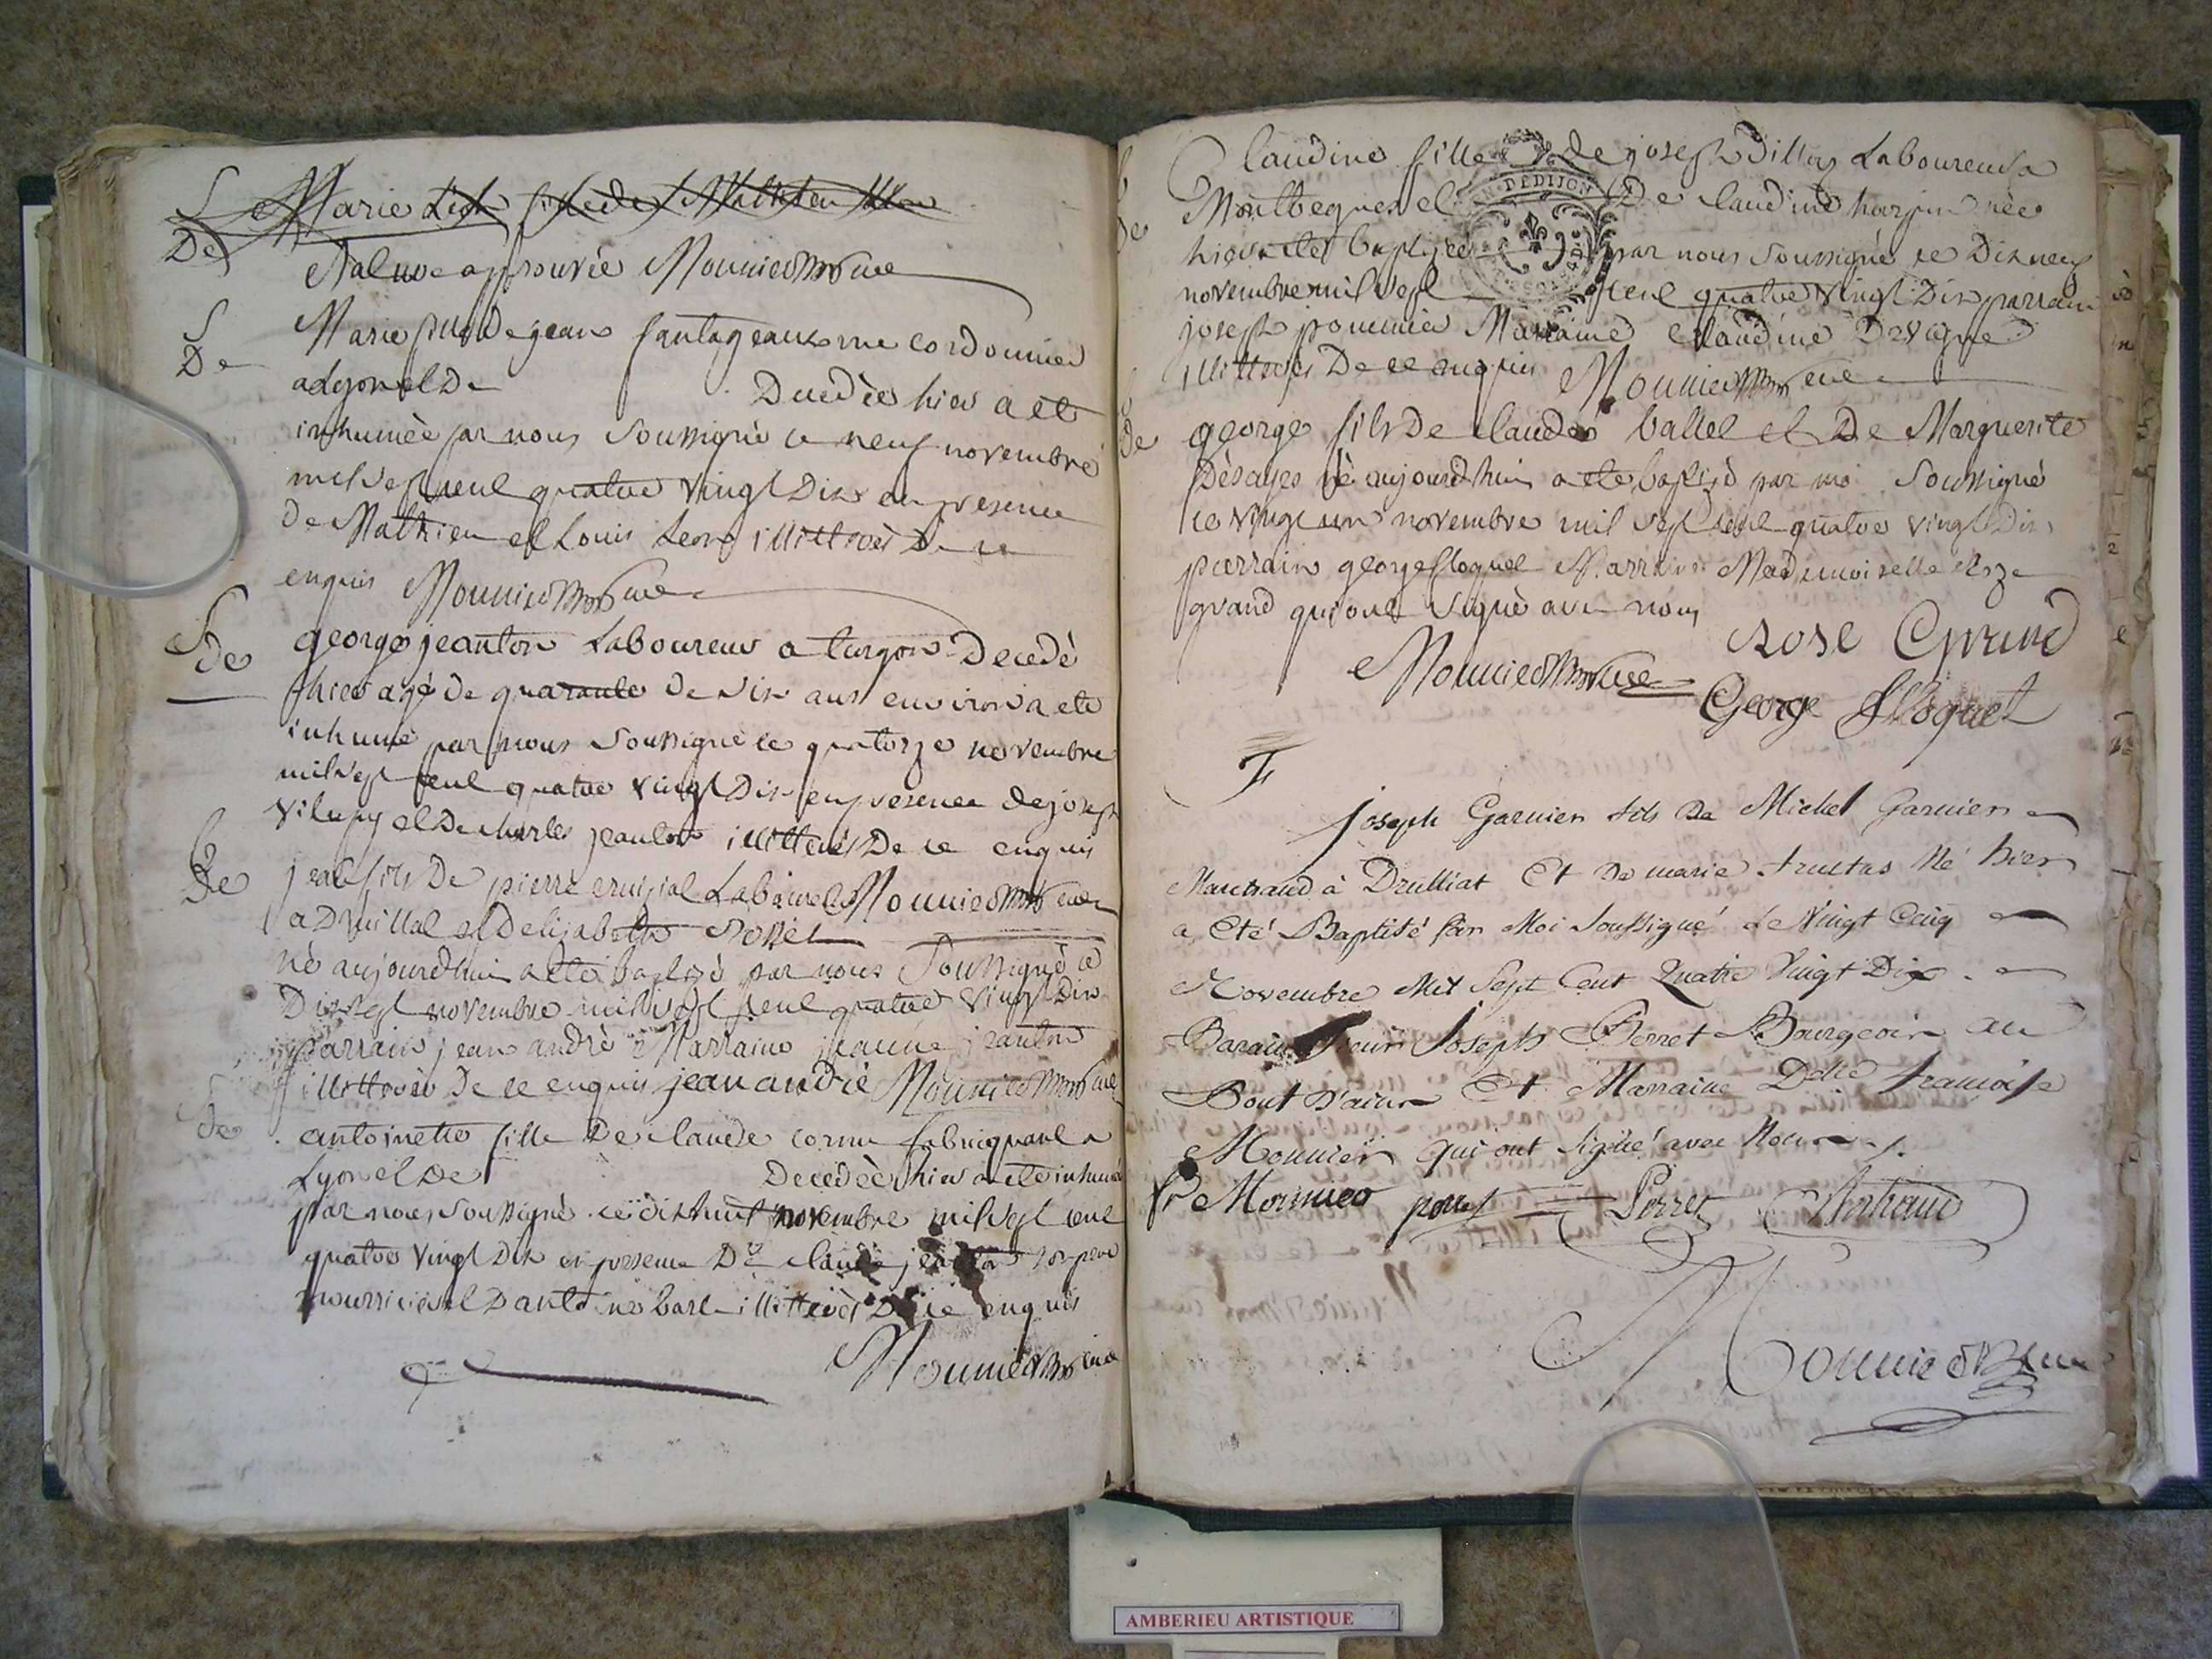 S
De
Marie Leon fille de Mathieu Leon
Rature approuvée Mounier cure
S
De
Marie fille De jean cordonnier
a Lyon et De Decedèe hier a ete
inhumèe par nous Soussignè ce neuf novembre
mil sept cent quatre vingt Dix en presence
De Mathieu et Louis Leon illittrès De ce
enquis Mounier cure
S
De
george jeanton Laboureur a turgon Decedè
hier agé de quarante De Six ans environ a ete
inhumé par nous Soussigné le quatorze novembre
mil sept cent quatre vingt Dix en presence de joseph
et De charles jeanton illittrés De ce enquis
B
De
jean fils De pierre Mounier cure
a Druillat et Delizabethe
nè aujourdhui a eté baptizè par nous Soussigné ce
Dix sept novembre mil sept cent quatre vingt Dix
parrain jean andrè Marraine jeanne jeanton
illittrès De ce enquis jean andrié Mounier cure
S
De
antoinette fille De claude cornu fabriquant a
Lyon et De Decedèe hier a ete inhumé
par nous Soussigné ce dix huit novembre mil sept cent
quatre vingt Dix en presence De claude jeanton son pere
nourricier et Dantoine illittrès De ce enquis
Mounier cure
B
De
Claudine fille de joseph Laboureur a
et De claudine née
hier a eté baptizée par nous Soussigné ce Dix neuf
novembre mil sept cent quatre vingt Dix parrain
joseph pommier Marraine claudine Devigne
illittrés De ce enquis Mounier cure
N DE DIJON
B
De
george fils De claude vallet et De Marguerite
Désayes né aujourdhui a ete baptizé par moi Soussigné
ce vingt un novembre mil sept cent quatre vingt Dix
parrain george floquet Marraine Mademoiselle Roze
grand qui ont Signè avec nous
Rose Grand
Mounier cure
George Floquet
Joseph Garnier fils De Michel Garnier
Marchand à Drulliat Et De marie Né hier
a Eté Baptisé par Moi Soussigné Le Vingt Cinq
Novembre Mil Sept Cent Quatre Vingt Dix
Parain Sieur Joseph Perret Bourgeois au
Pont D'ain Et Marraine Delle francoise
Mounier qui ont Signé avec Nous
Mounier Perret
Mounier Cure
AMBERIEU ARTISTIQUE